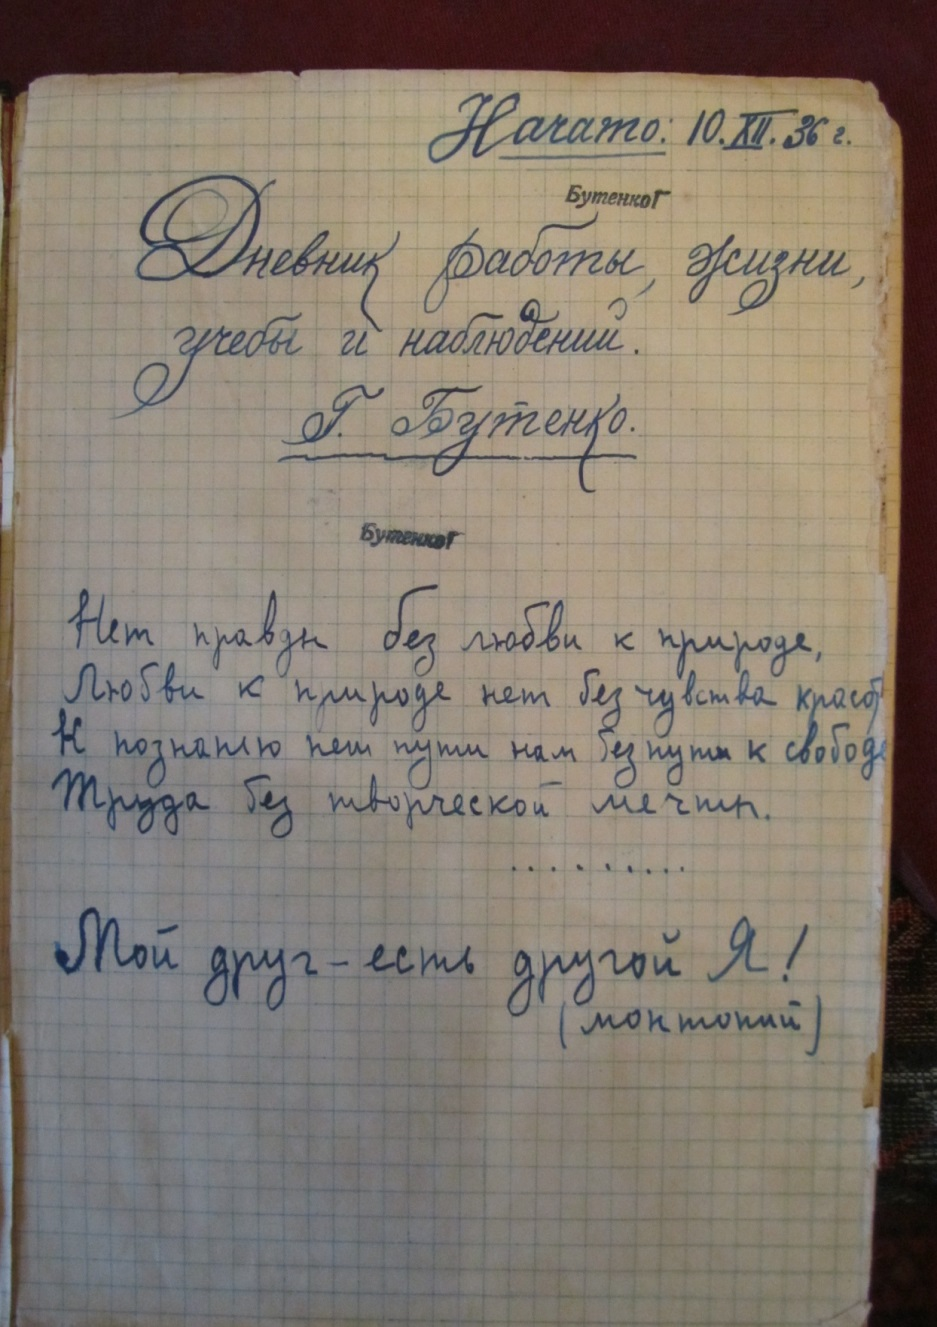 Начато: 10.XII.36 г.
БутенкоГ
Дневник работы, жизни,
учебы и наблюдений.
Г. Бутенко.
БутенкоГ
Нет правды без любви к природе,
Любви к природе нет без чувства красот
К познанию нет пути нам без пути к свободе
Труда без творческой мечты.
..........
Мой друг – есть другой Я!